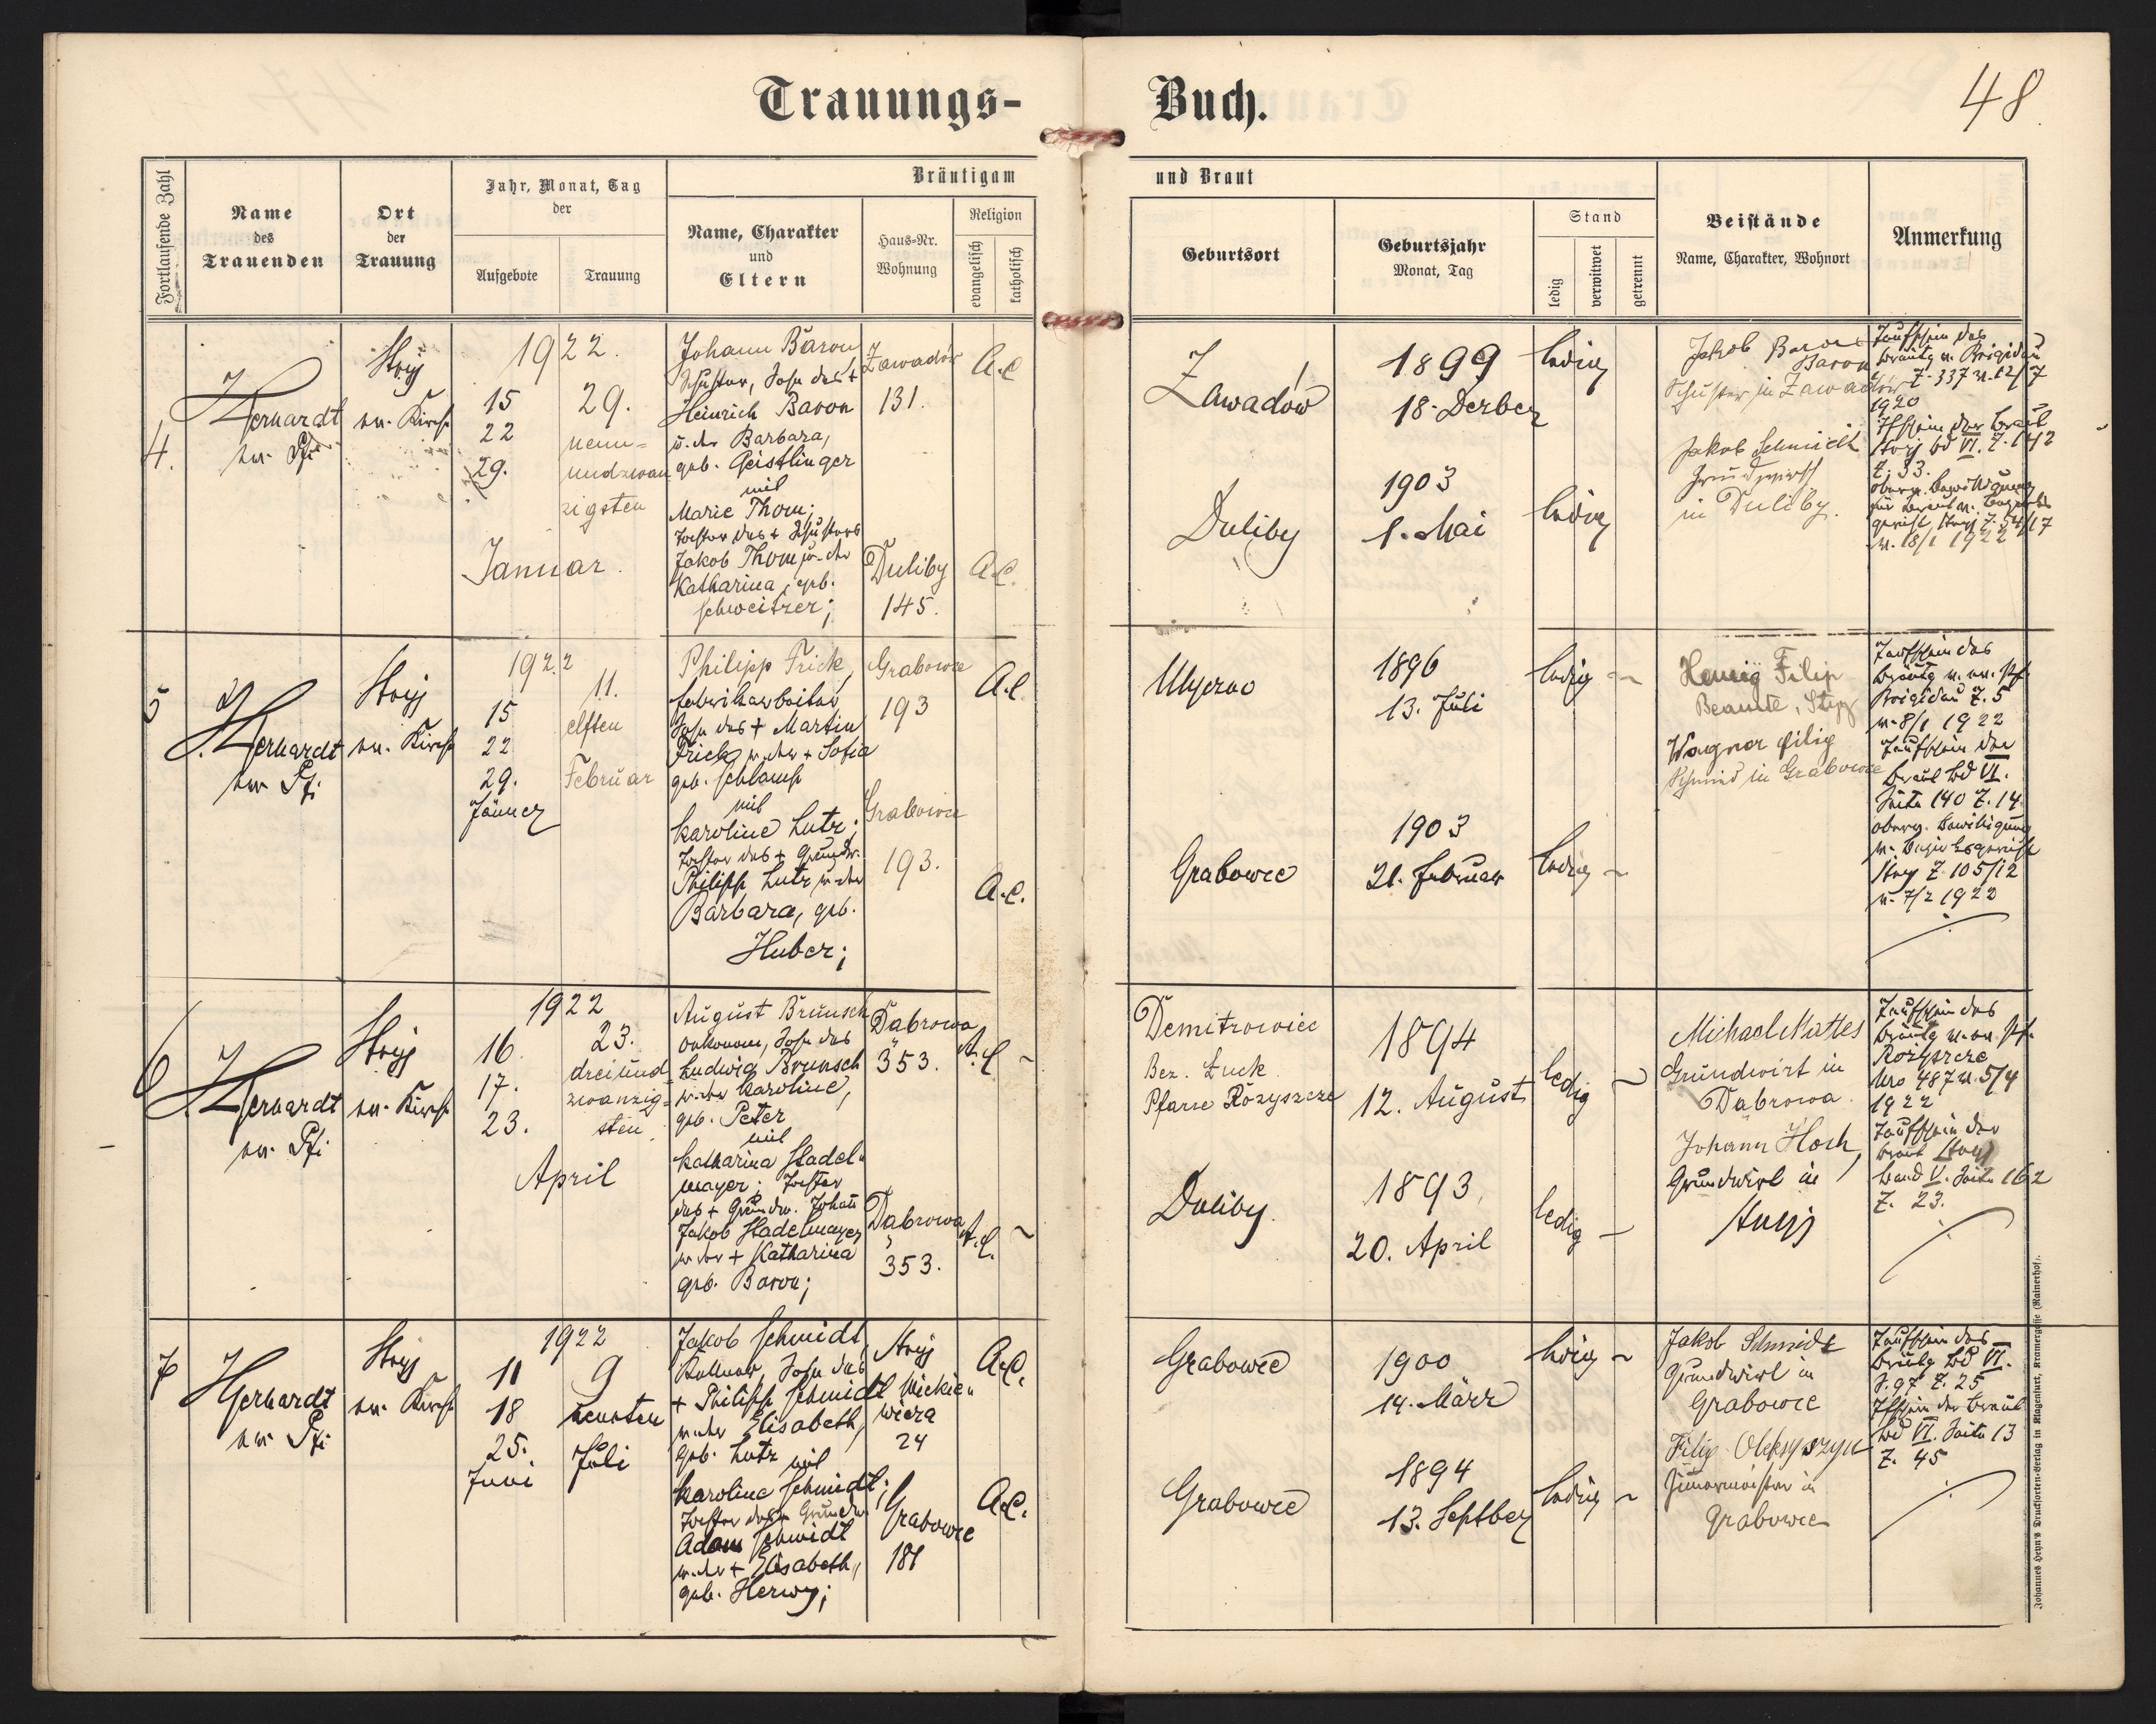 Trauungs-
Buch.
48
Fortlaufende Zahl
Name
des
Trauenden
Ort
der
Trauung
Jahr, Monat, Tag
der
Aufgebote
Trauung
Bräutigam
Name, Charakter
und
Eltern
Haus-Nr.
Wohnung
Religion
evangelisch
katholisch
und Braut
Geburtsort
Geburtsjahr
Monat, Tag
Stand
ledig
verwitwet
getrennt
Beistände
Name, Charakter, Wohnort
Anmerkung
4.
Stryj
ev. Kirche
1922.
15
22
29.
29.
neun-
undzwan
zigsten
Januar
Johann Baron
Schuster, Sohn des +
Heinrich Baron
u. der Barbara,
geb. Geistlinger
mit
Marie Thom;
Tochter des + Schusters
Jakob Thom u. der
Katharina, geb.
Schweitzer;
Zawadów
131.
A.C
Duliby
145.
A.C.
Zawadów
1899
18. Dezber
ledig
Duliby
1903
1. Mai
ledig
Jakob Baron
Baron
Schuster in Zawadów
Jakob Schmidt
Grundwirt
in Duliby.
Taufschein des
Bräutg v. Brigidau
Z. 337 v. 12/7
1920
Tfschein der Braut
Stryj Bd VI. Z. 142
Z. 33.
oberv. Bewilligung
der Braut v. Bezirks
gericht Stryj Z. 54/17
v. 18/1 1922
5
Stryj
ev. Kirche
1922
15
22
29.
Jänner
11.
elften
Februar
Philipp Frick,
Fabrikarbeiter
Sohn des + Martin
Frick u. der + Sofia
geb. Schlamp
mit
Karoline Lutz;
Tochter des + Grundw.
Philipp Lutz u. der
Barbara, geb.
Huber;
Grabowce
193
A.C.
Grabowce
193.
A.C.
Uhyzno
1896
13. Juli
ledig
Grabowce
1903
21. Februar
ledig
Hennig Filip
Beamte, Stryj
Wagner Filip
Schmid in Grabowce
Taufschein des
Bräutg v. ev. Pf.
Brigidau Z. 5
v. 8/1 1922
Taufschein der
Braut Bd VI.
Seite 140 Z. 14
oberv. Bewilligung
v. Bezirksgericht
Stryj Z. 105/12
v. 7/2 1922
6
Stryj
ev. Kirche
1922
16.
17.
23.
23.
dreiund
zwanzig-
sten
April
August Brunsch
Oekonom, Sohn des
Ludwig Brunsch
u. der Karoline,
geb. Peter
mit
Katharina Stadel-
mayer; Tochter
des + Grundw. Johan
Jakob Stadelmayer
u. der + Katharina
geb. Baron;
Dąbrowa
353.
A.C
Dąbrowa
353.
A.C.
Demitrowice
Bez. Łuck
Pfarre Rożyszcze
1894
12. August
ledig
Duliby
1893
20. April
ledig
Michael Mattes
Grundwirt in
Dąbrowa
Johann Hoch,
Grundwirt in
Stryj
Taufschein des
Bräutg v. ev. Pf.
Rożyszcze
Nro 487 v. 5/4
1922
Taufschein der
Braut Stryj
Band V. Seite 162
Z. 23.
7
Gerhardt
ev. Pfr
Stryj
ev. Kirche
1922
11
18
25.
Juni
9
neunten
Juli
Jakob Schmidt
Kellner, Sohn des
+ Philipp Schmidt
u. der Elisabeth,
geb. Lutz mit
Karoline Schmidt;
Tochter des + Grundw.
Adam Schmidt
u. der + Elisabeth,
geb. Herwy;
Stryj
Mickie-
wicza
24
A.C.
Grabowce
181
A.C.
Grabowce
1900
14. März
ledig
Grabowce
1894
13. Septber
ledig
Jakob Schmidt
Grundwirt in
Grabowce
Filip Oleksyszyn
in
Grabowce
Taufschein des
Bräutg Bd VI.
S. 97 Z. 25
Tfschein der Braut
Bd VI. Seite 13
Z. 45
Johannes Heyn's Drucksorten-Verlag in Klagenfurt, Kramergasse (Rainerhof).